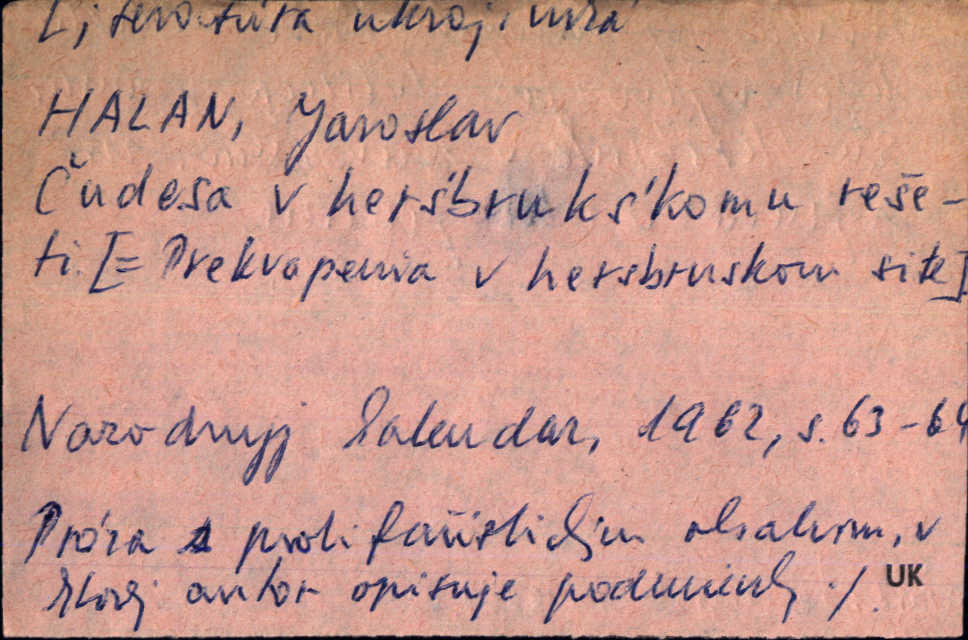 Literatúra ukrajinská
HALAN, Yaroslav
Čudesa v heršbrukśkomu reše-
ti. [= Prekvapenia v hersbruskom site]
Narodnyj kalendar, 1962, s. 63-64
Próza s protifašistickým obsahom, v
ktorej autor opisuje podmienky ./. UK